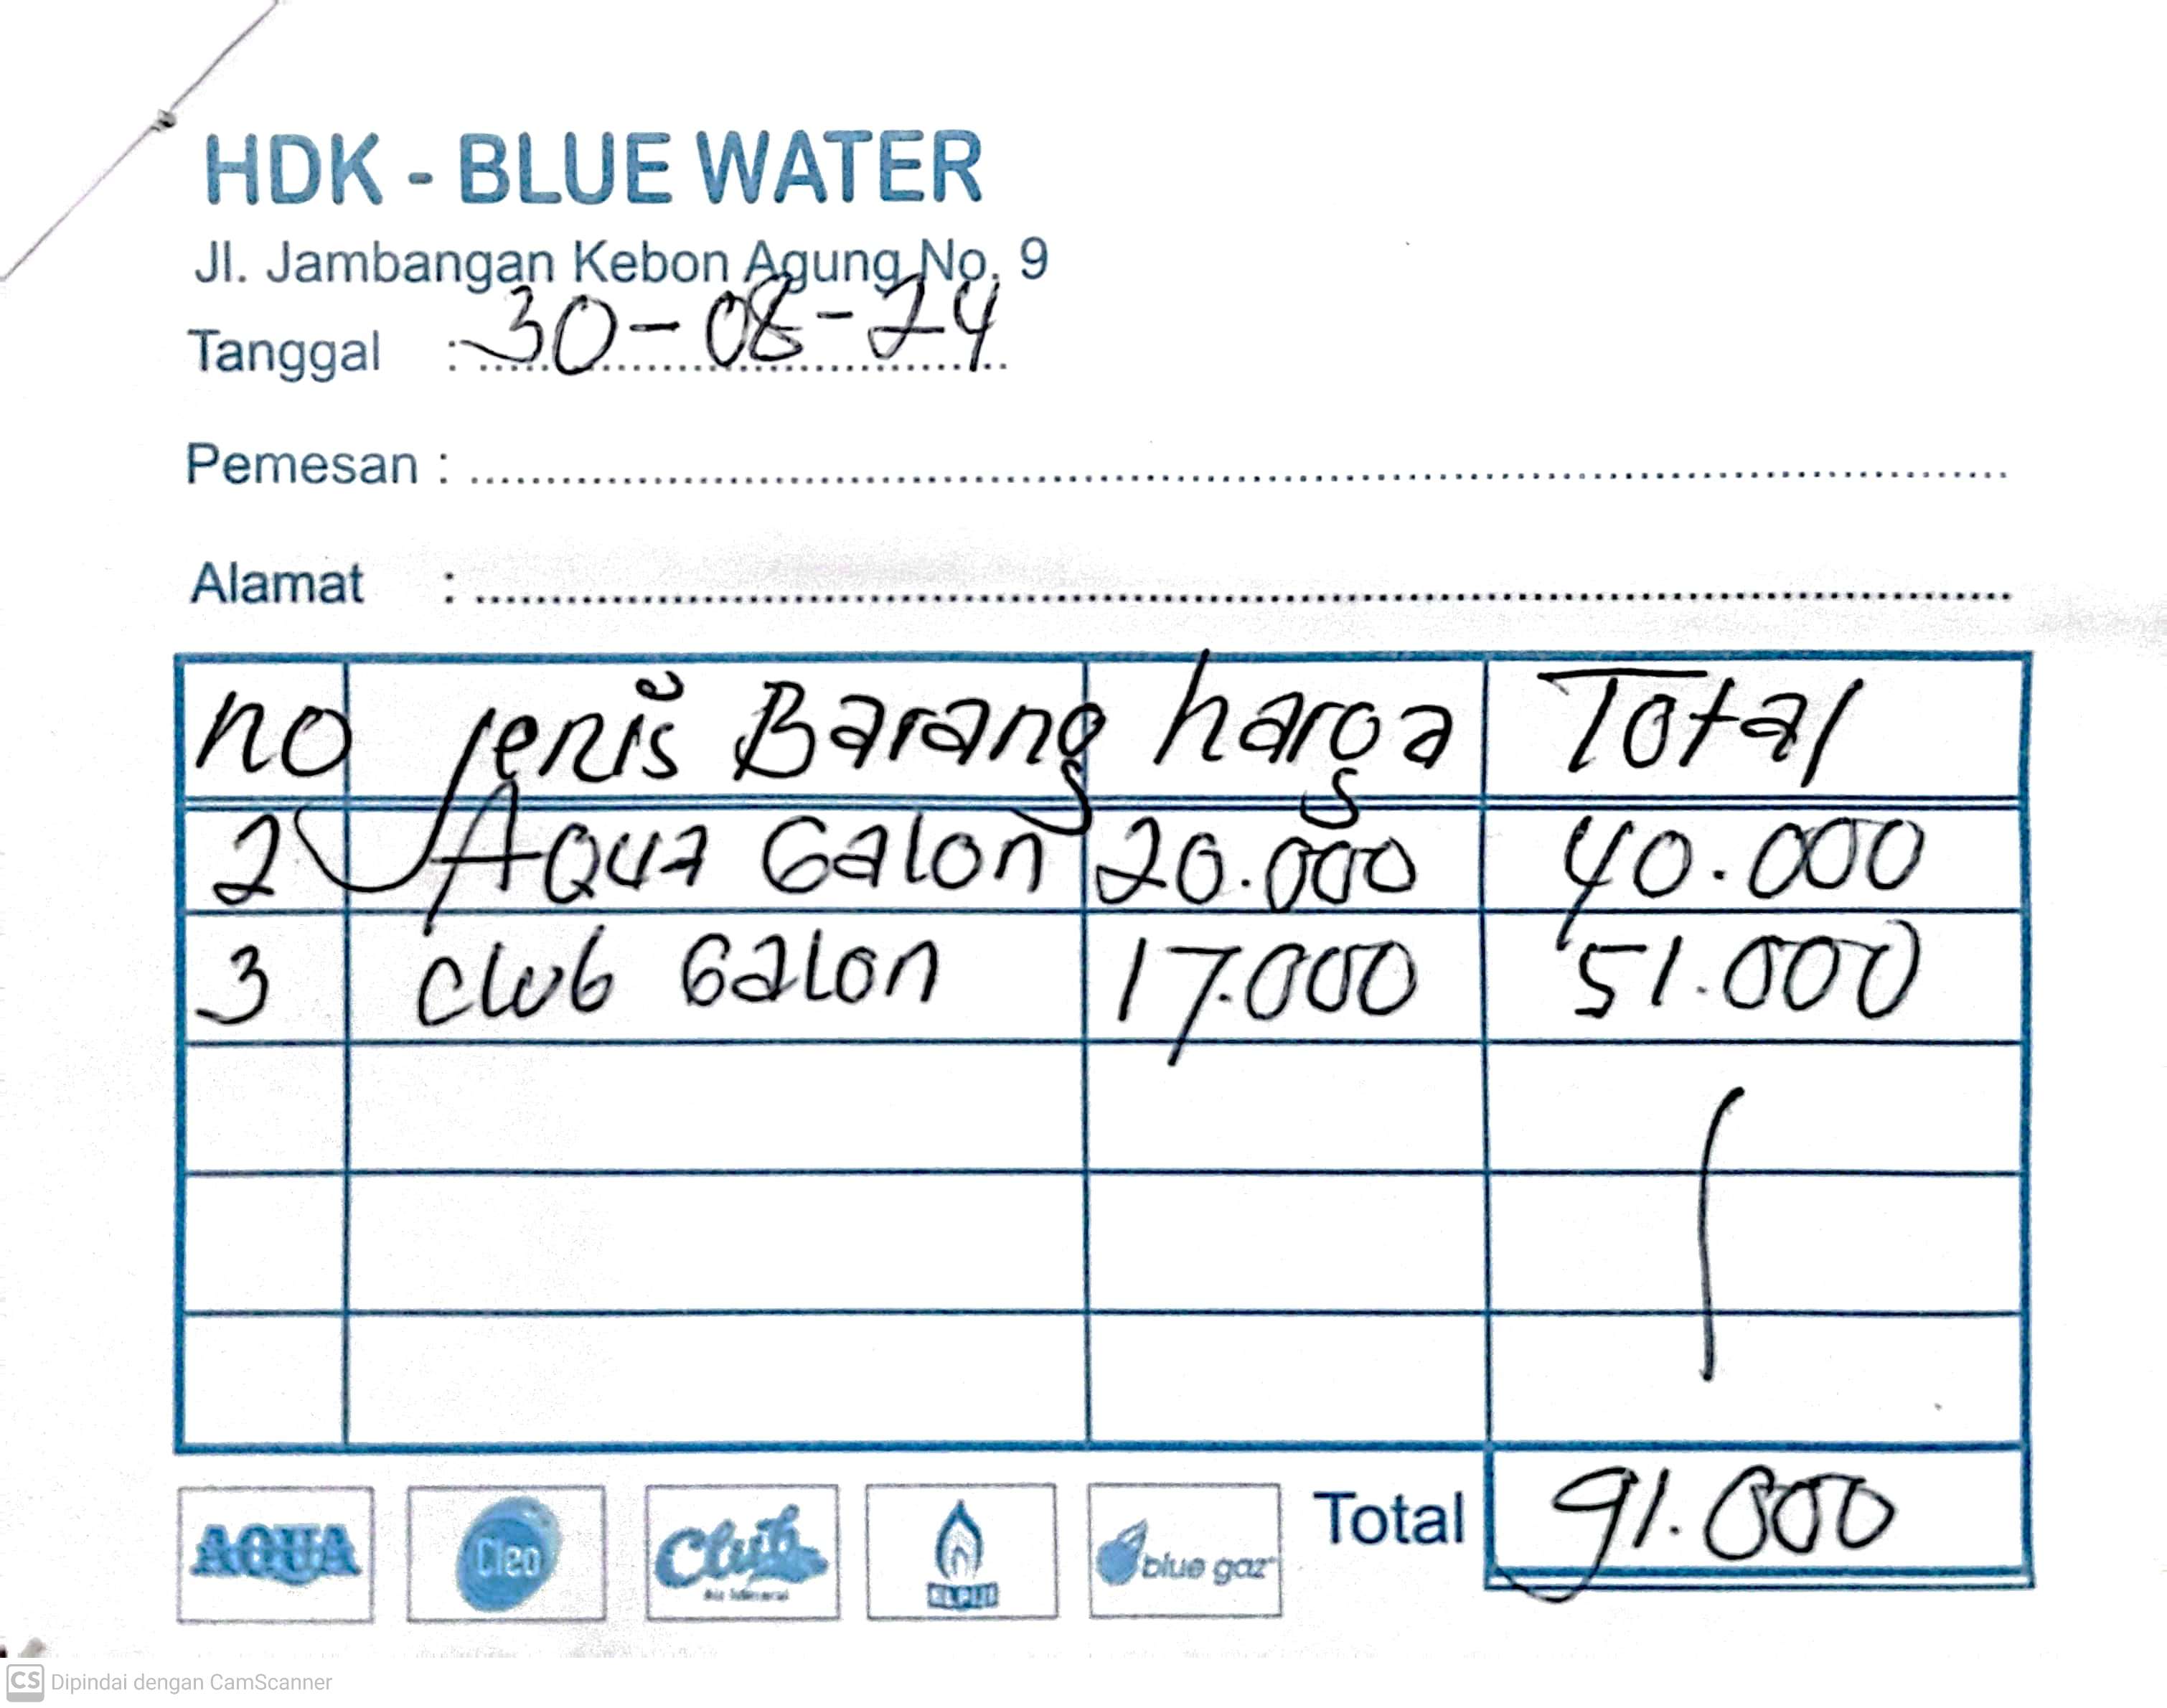 HDK - BLUE WATER
Jl. Jambangan Kebon Agung No. 9
Tanggal : 30-08-24
Pemesan :
Alamat :
no jenis Barang harga Total
2 Aqua Galon 20.000 40.000
3 club Galon 17.000 51.000
Total 91.000
AQUA Cleo Club ELPIJI blue gaz
Air Mineral
CS Dipindai dengan CamScanner